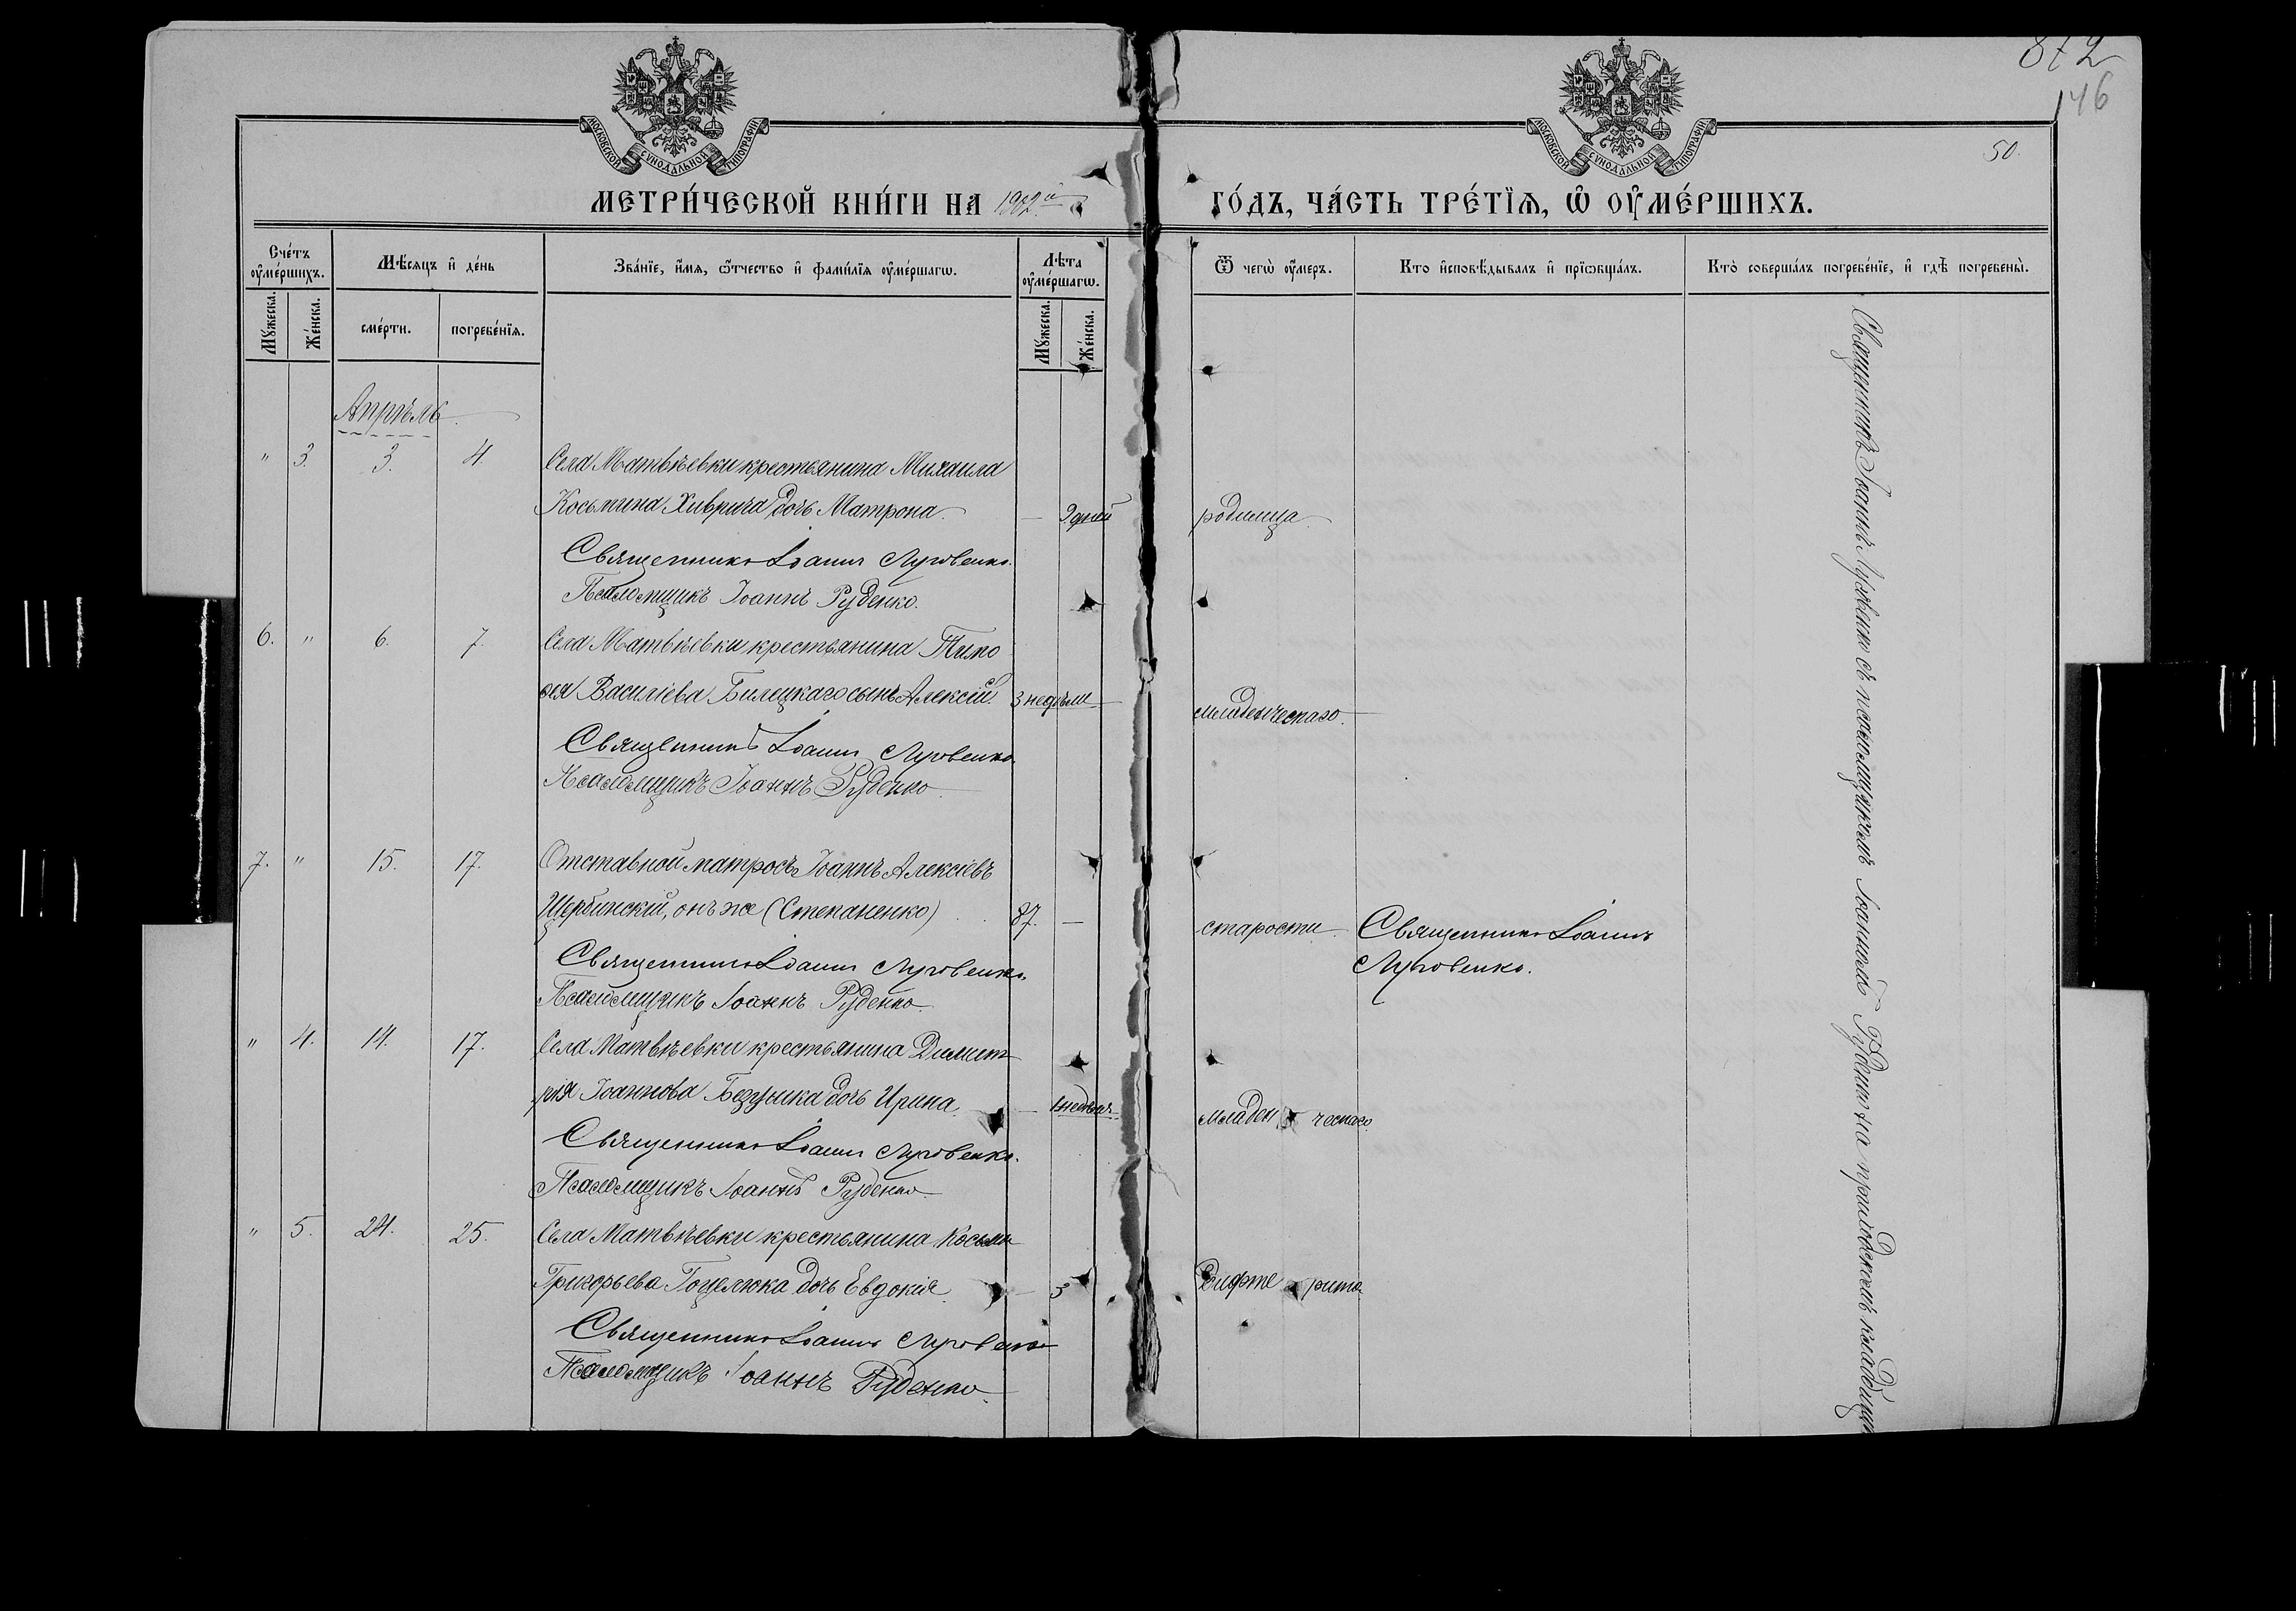 872
46
50.
МОСКОВСКОЙ СѴНОДАЛЬНОЙ ТИПОГРАФІИ
МОСКОВСКОЙ СѴНОДАЛЬНОЙ ТИПОГРАФІИ
МЕТРИ́ЧЕСКОЙ КНИ́ГИ НА 1902й ГО́ДЪ, ЧА́СТЬ ТРЕ́ТЇѦ, Ѡ ОУ҆МЕ́РШИХЪ.
Сче́тъ оу҆ме́ршихъ.
Мѣ́сяцъ и҆ де́нь
Зва́нїе, и҆́мя, ѻ҆́тчество и҆ фами́лїя оу҆ме́ршагѡ.
Лѣ́та оу҆ме́ршагѡ.
Ѿ чегѡ̀ оу҆́меръ.
Кто и҆сповѣ́дывалъ и҆ прїѡбща́лъ.
Кто̀ соверша́лъ погребе́нїе, и҆ гдѣ̀ погребены̀.
Мꙋ́жеска.
Же́нска.
сме́рти.
погребе́нїя.
Мꙋ́жеска.
Же́нска.
Апрѣль
" 3. 3. 4. Села Матвѣевки крестьянина Михаила
Косьмина Хиврича дочь Матрона. — 9 дней родимца.
Священникъ Іоаннъ Луговенко.
Псаломщикъ Іоаннъ Руденко.
6. " 6. 7. Села Матвѣевки крестьянина Тимо
ѳея Василіева Билецкаго сынъ Алексій. 3 недѣли — младенческаго.
Священникъ Іоаннъ Луговенко.
Псаломщикъ Іоаннъ Руденко.
7. " 15. 17. Отставной матросъ Іоаннъ Алексіевъ
Щербинскій, онъ же (Степаненко) . . 87. — старости. Священникъ Іоаннъ
Луговенко.
Священникъ Іоаннъ Луговенко.
Псаломщикъ Іоаннъ Руденко.
" 4. 14. 17. Села Матвѣевки крестьянина Димит
рія Іоаннова дочь Ирина. — младенческаго.
Священникъ Іоаннъ Луговенко.
Псаломщикъ Іоаннъ Руденко.
" 5. 24. 25. Села Матвѣевки крестьянина Косьмы
Григорьева Гоцелюка дочь Евдокія — 3 Дифтерита.
Священникъ Іоаннъ Луговенко
Псаломщикъ Іоаннъ Руденко.
Священникъ Іоаннъ Луговенко съ псаломщикомъ Іоанномъ Руденко на приходскомъ кладбищѣ